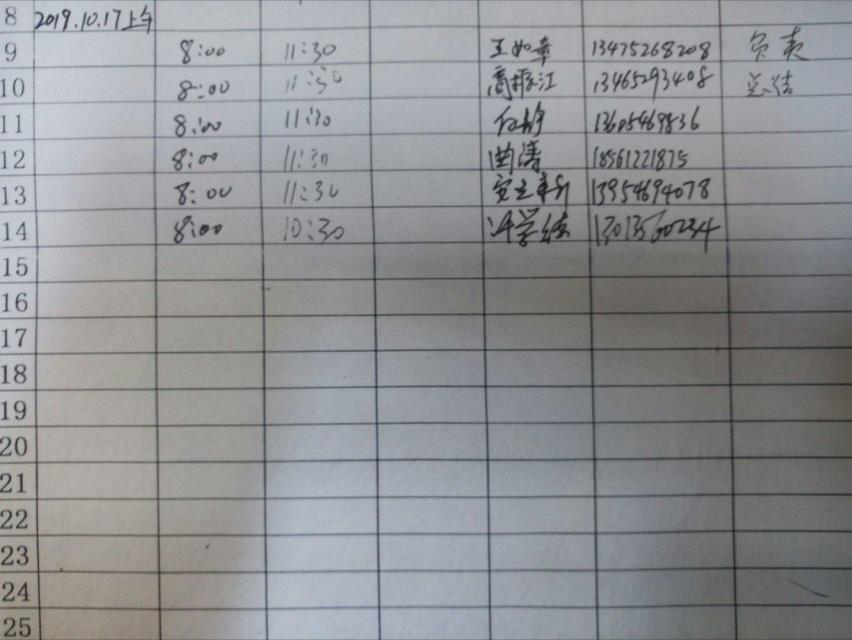 8 2019.10.17上午
9 8:00 11:30 王如华 13475268208 负责
10 8:00 11:30 高振江 13465293408 总结
11 8:00 11:30 13605469836
12 8:00 11:30 曲涛 18561221875
13 8:00 11:30 13954694078
14 8:00 10:30 许学德 13013560234
15
16
17
18
19
20
21
22
23
24
25